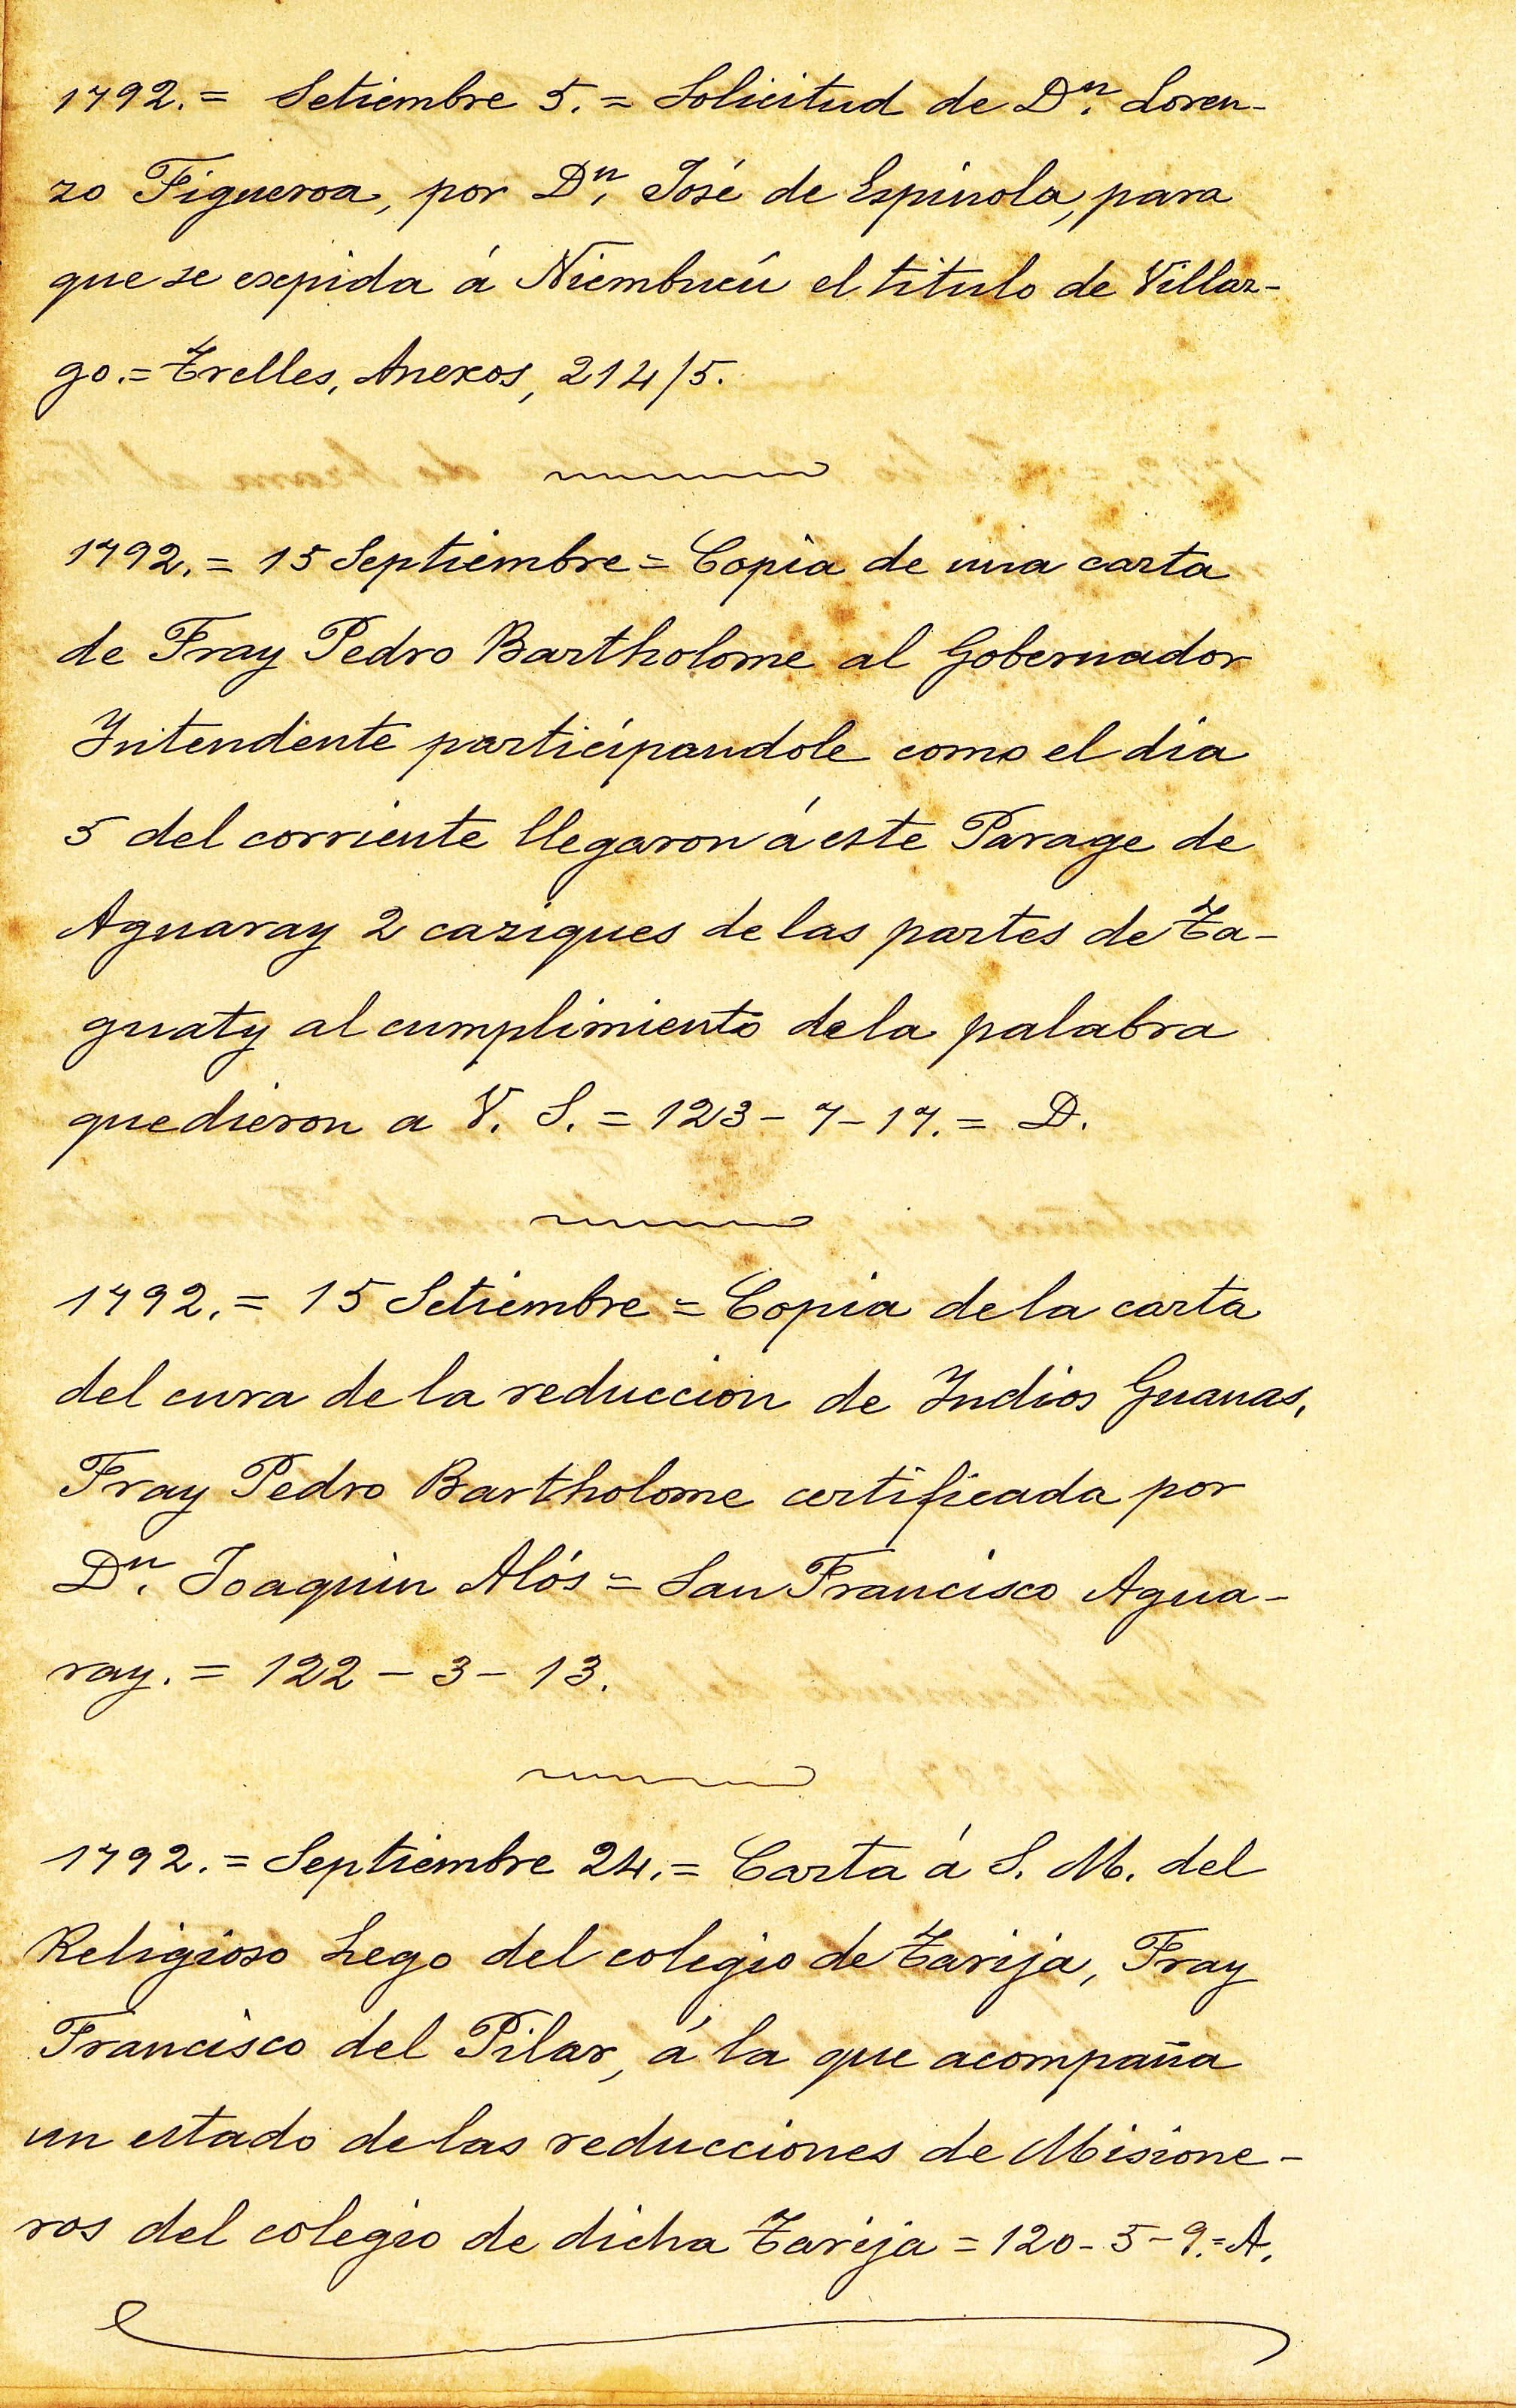 1792.= Setiembre 5.= Solicitud de Dⁿ. Loren-
zo Figueroa, por Dⁿ. José de Espinola, para
que se expida á Ñiembucú el titulo de Villaz-
go.= Trelles, Anexos, 214/5.
1792.= 15 Septiembre = Copia de una carta
de Fray Pedro Bartholome al Gobernador
Intendente participandole como el dia
5 del corriente llegaron á este Parage de
Aguaray 2 caziques de las partes de Ta-
guaty al cumplimiento de la palabra
que dieron a V. S. = 123 - 7 - 17. = D.
1792. = 15 Setiembre = Copia de la carta
del cura de la reduccion de Indios Guanas,
Fray Pedro Bartholome certificada por
Dⁿ. Joaquin Alós = San Francisco Agua-
ray. = 122 - 3 - 13.
1792. = Septiembre 24. = Carta á S. M. del
Religioso Lego del colegio de Tarija, Fray
Francisco del Pilar, á la que acompaña
un estado de las reducciones de Misione-
ros del colegio de dicha Tarija = 120 - 5 - 9. = A.